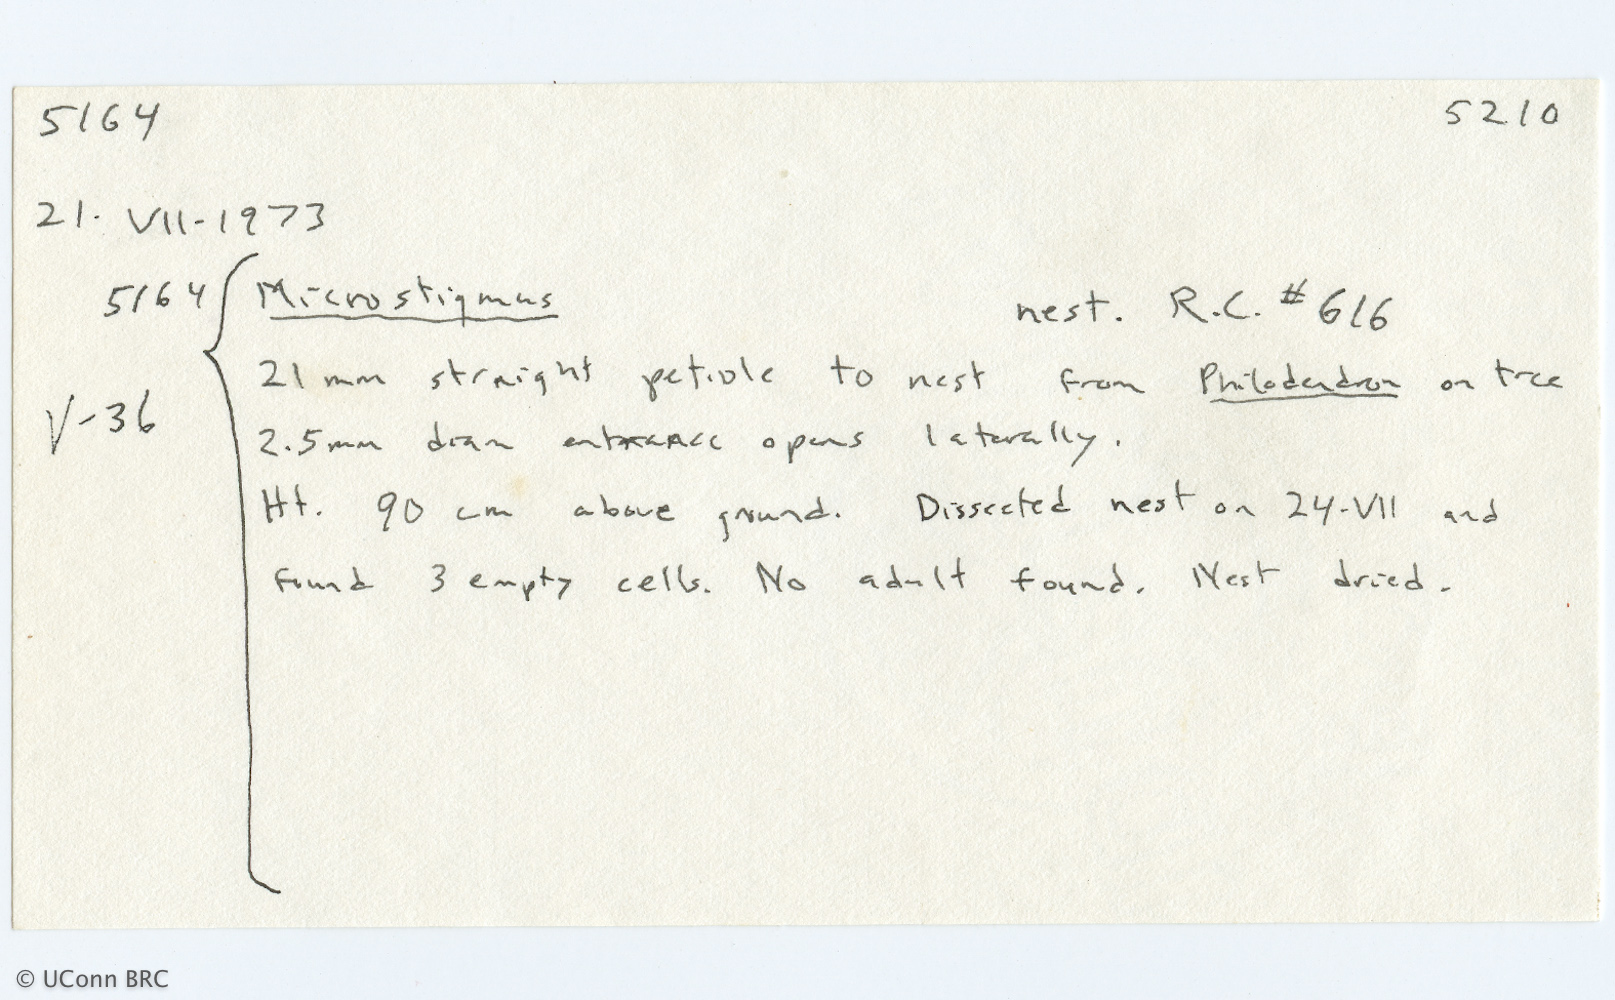 5164 5210
21. VII-1973
5164 Microstigmus nest. R.C. #616
21 mm straight petiole to nest from Philodendron on tree
V-36
2.5mm diam entrance opens laterally.
Ht. 90 cm above ground. Dissected nest on 24-VII and
found 3 empty cells. No adult found. Nest dried.
© UConn BRC